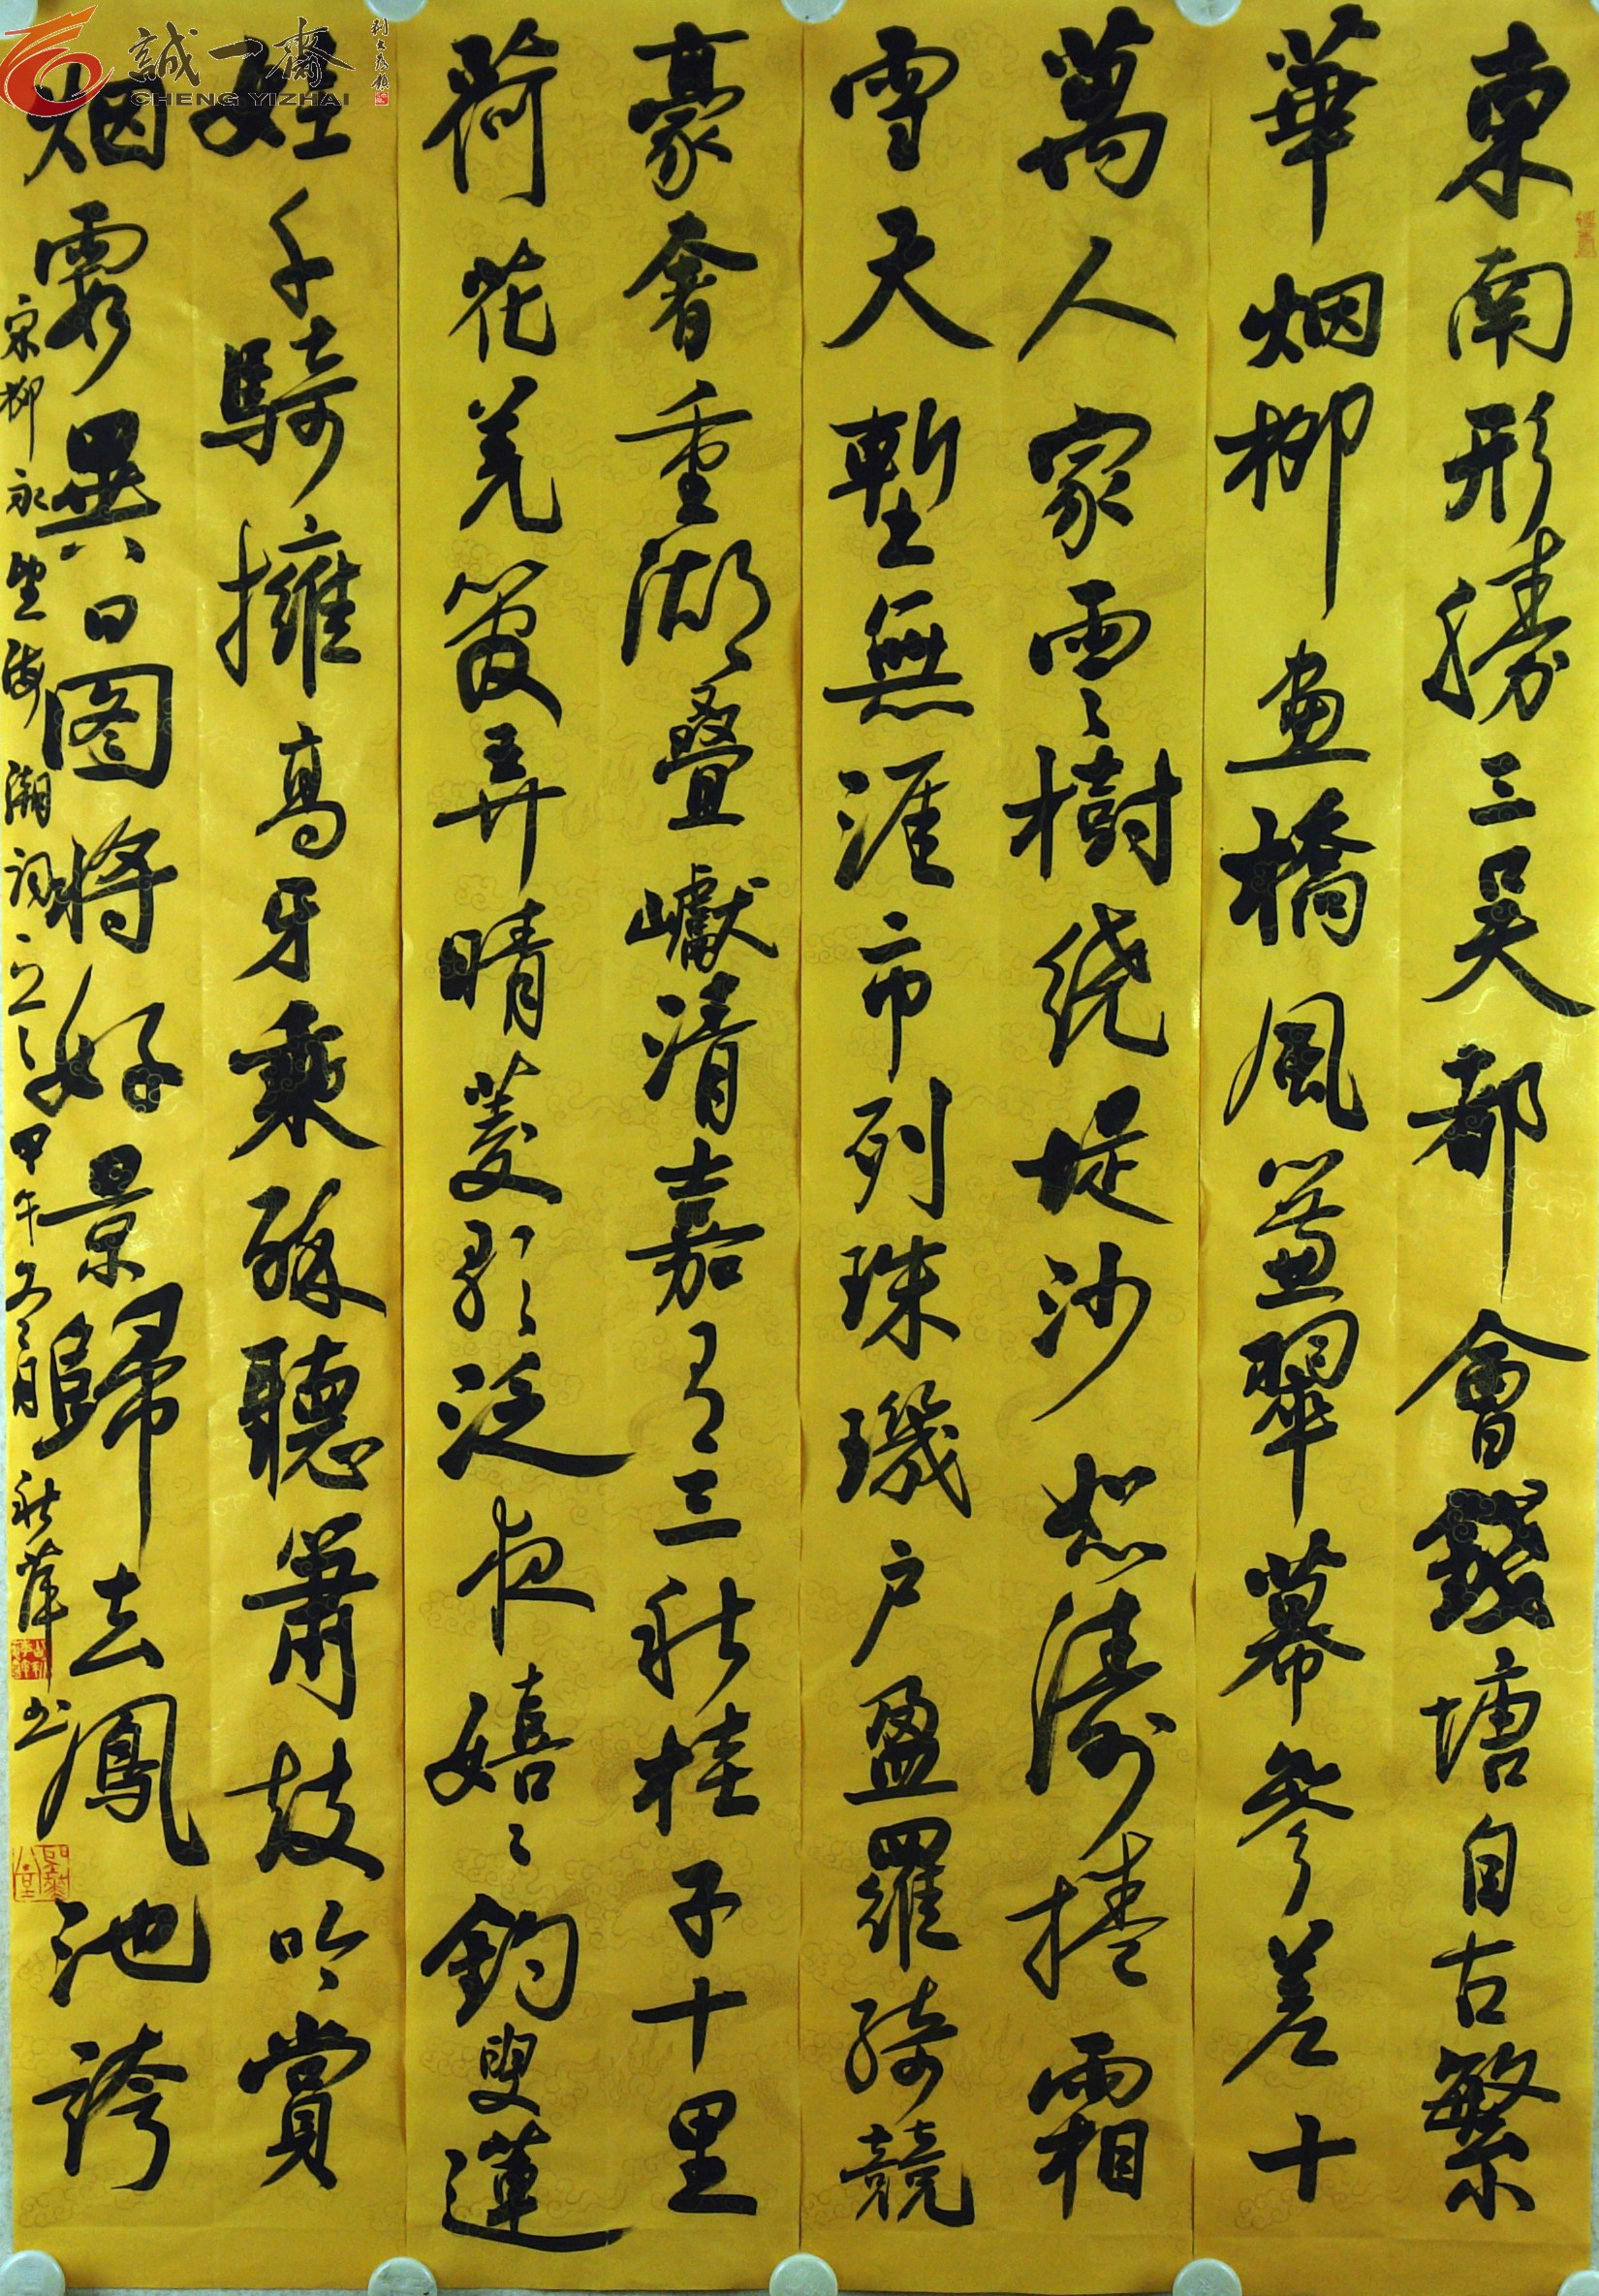 東南形勝三吴都會錢塘自古繁
華烟柳畫橋風簾翠幕參差十
萬人家雲々樹繞堤沙怒濤捲霜
雪天塹無涯市列珠璣户盈羅綺競
豪奢重湖疊巘清嘉有三秋桂子十里
荷花羌管弄晴菱歌泛夜嬉々釣叟蓮
娃千騎擁高牙乘醉聽簫鼓吟賞
烟霞異日图將好景歸去鳳池誇
宋柳永望海潮詞一首甲午
秋萍书
誠一齋
CHENG YIZHAI